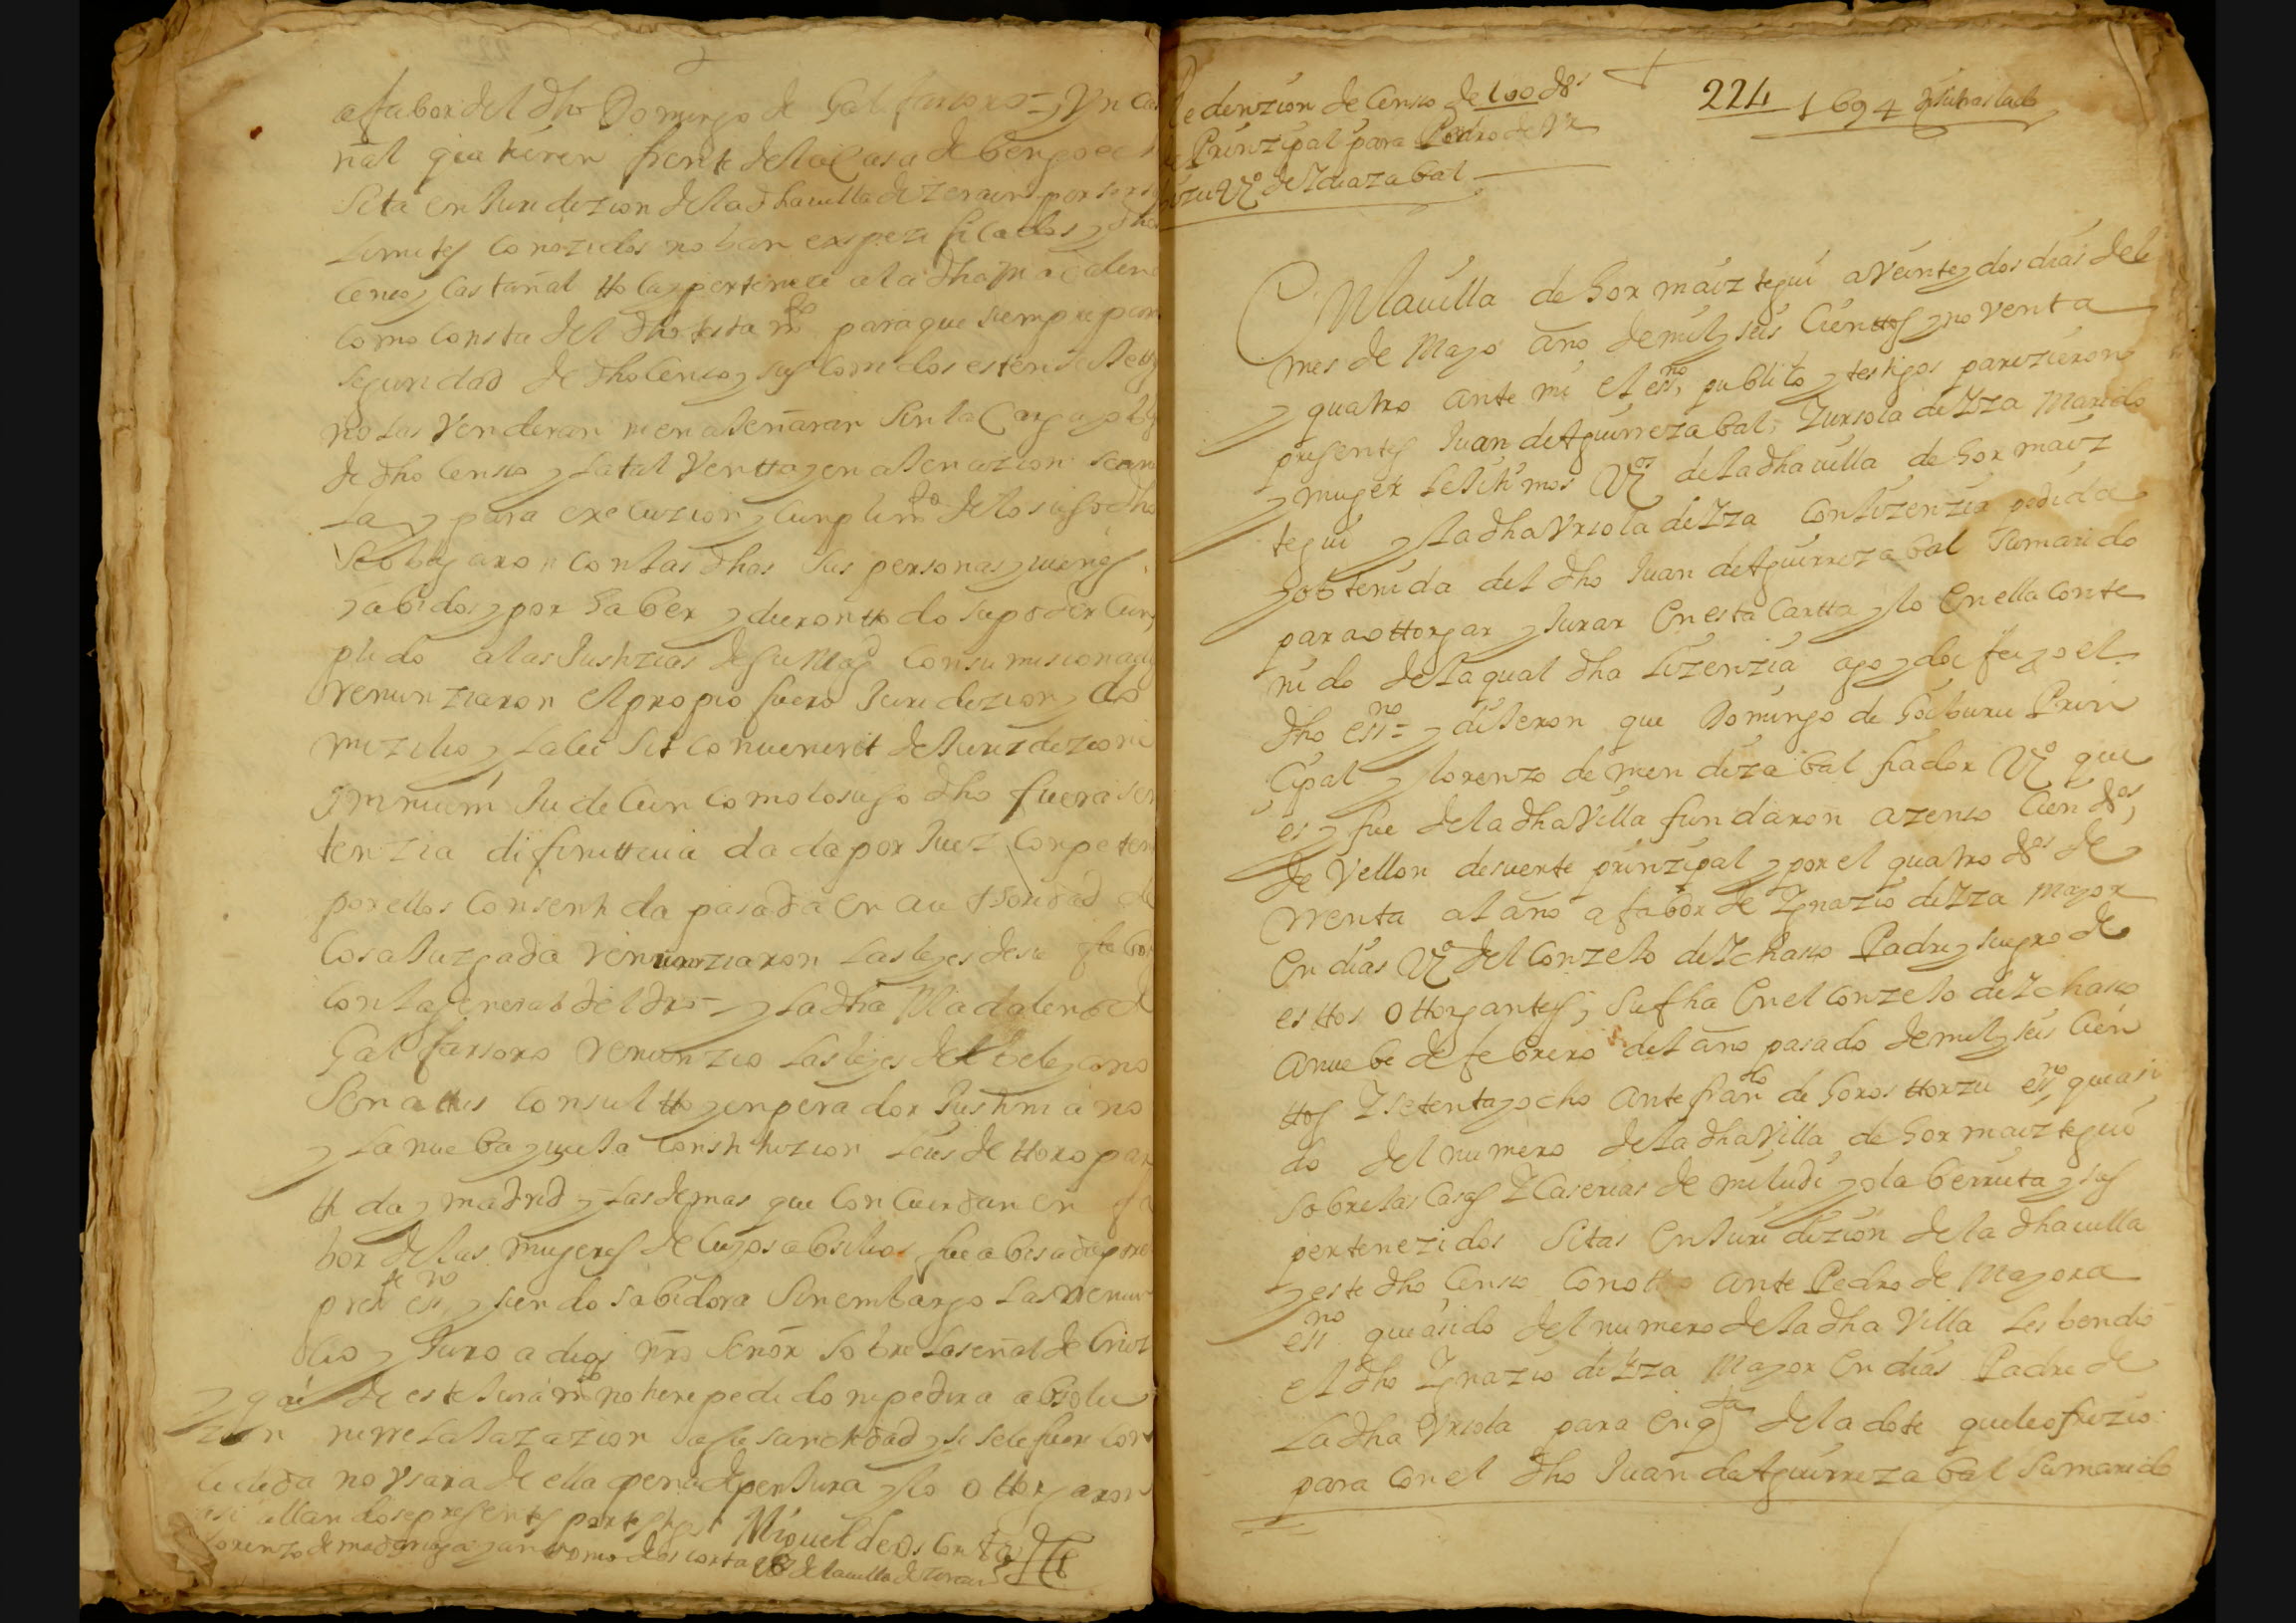 a fabor del dho Domingo de Galfarsoro = Y Un Cas
nal que tienen frente de la Casa de bengoec
Sita en Juridizion de la dha uilla de Zerain por ser s
Limites Conozidos no ban expezificados y dho
Censo y Castañal tto las pertenece a la dha
como Consta del dho testamto para que siempre para
seguridad de dho Censo y sus Corridos esten
no las Venderan ni enaJenaran Sin la Carga y obl
de dho Censo y la tal Ventta y enaJenazion sea n
La y para execuzion y Cunplimto de lo suso dho
Se obligaron Con las dhas sus personas y uienes
auidos y por haber y dieron ttodo su poder Cun
plido a las Justizias de su Magd Con sumision a
renunziaron el propio fuero Juridizion y do
mizilio y La lei Sit Conuenerit de Jurisdizione
omnium Judicun Como lo suso dho fuera sen
tenzia difinittiua dada por Juez Conpeten
por ellos Consentida pasada en auttoridad de
Cosa Juzgada renunziaron Las leyes de su fabor
Con la general del dro = y La dha Madalena de
Galfarsoro renunzio Las leyes del beleyano
Senattus Consultto y enperador Justiniano
y La nueba y uieJa Constituzion Leies de ttoro par
tida y madrid y Las demas que Con Cuerdan en fa
bor de las mugeres de Cuyos absilios fue abisada por el
preste esno y siendo sabidora Sin embargo Las renun
zio y Juro a dios nro Señor sobre La señal de Cruz
y que de este Juramto no tiene pedido ni pedira absolu
zion ni rrelaJazazion a su santidad y si se le fuere con
zedida no Vsara de ella pena de perJura y lo ottorgaron
asi allandose presentes por testigos Miguel de Oscorta
Lorenzo de madariaga y antonio de oscorta Vos de la uilla de Zerain
Redenzion de Censo de 100 dos
de Prinzipal para Pedro de Vr
bizu Vo de Idiazabal
224 1694
En La uilla de Gormaiztegui a Veinte y dos dias del
mes de Mayo año de mil y seis Cienttos y no venta
y quatro ante mi el essno publico y testigos parezieron
presentes Juan de Aguirrezabal, Y Ursola de Yza Marido
y muger LeJitimos Vos de la dha uilla de Gormaiz
tegui y la dha Vrsola de Yza Con lizenzia pedida
y obtenida del dho Juan de Aguirrezabal Su marido
para ottorgar y Jurar En esta Cartta y lo En ella Conte
nido de la qual dha Lizenzia ago y doi fee yo el
dho essno = y diJeron que Domingo de Goiburu Prin
cipal y lorenzo de mendizabal fiador Vo que
es y fue de la dha Villa fundaron a zenso Cien dos,
de Vellon de suerte prinzipal y por el quatro dos de
rrenta al año a fabor de Ygnazio de Yza Mayor
En dias Vo del Conzejo de Ychaso Padre y suegro de
esttos ottorgantes, Su fha En el Conzejo de Ychaso
a nuebe de febrero del año pasado de mil y seis Cien
ttos Y setenta y ocho ante franco de Gorosttorzu essno que asi
do del numero de la dha Villa de Gormaiztegui
sobre las Casas Y Caserias de miludi y olaberrieta y sus
pertenezidos Sitas En Juridizion de la dha uilla
y este dho Censo Con otto ante Pedro de Mayora
essno que asido del numero de la dha Villa Les bendio
el dho Ygnazio de Yza Mayor En dias Padre de
La dha Vrsola para en qta de la dote que le ofrezio
para Con el dho Juan de Aguirrezabal Su marido